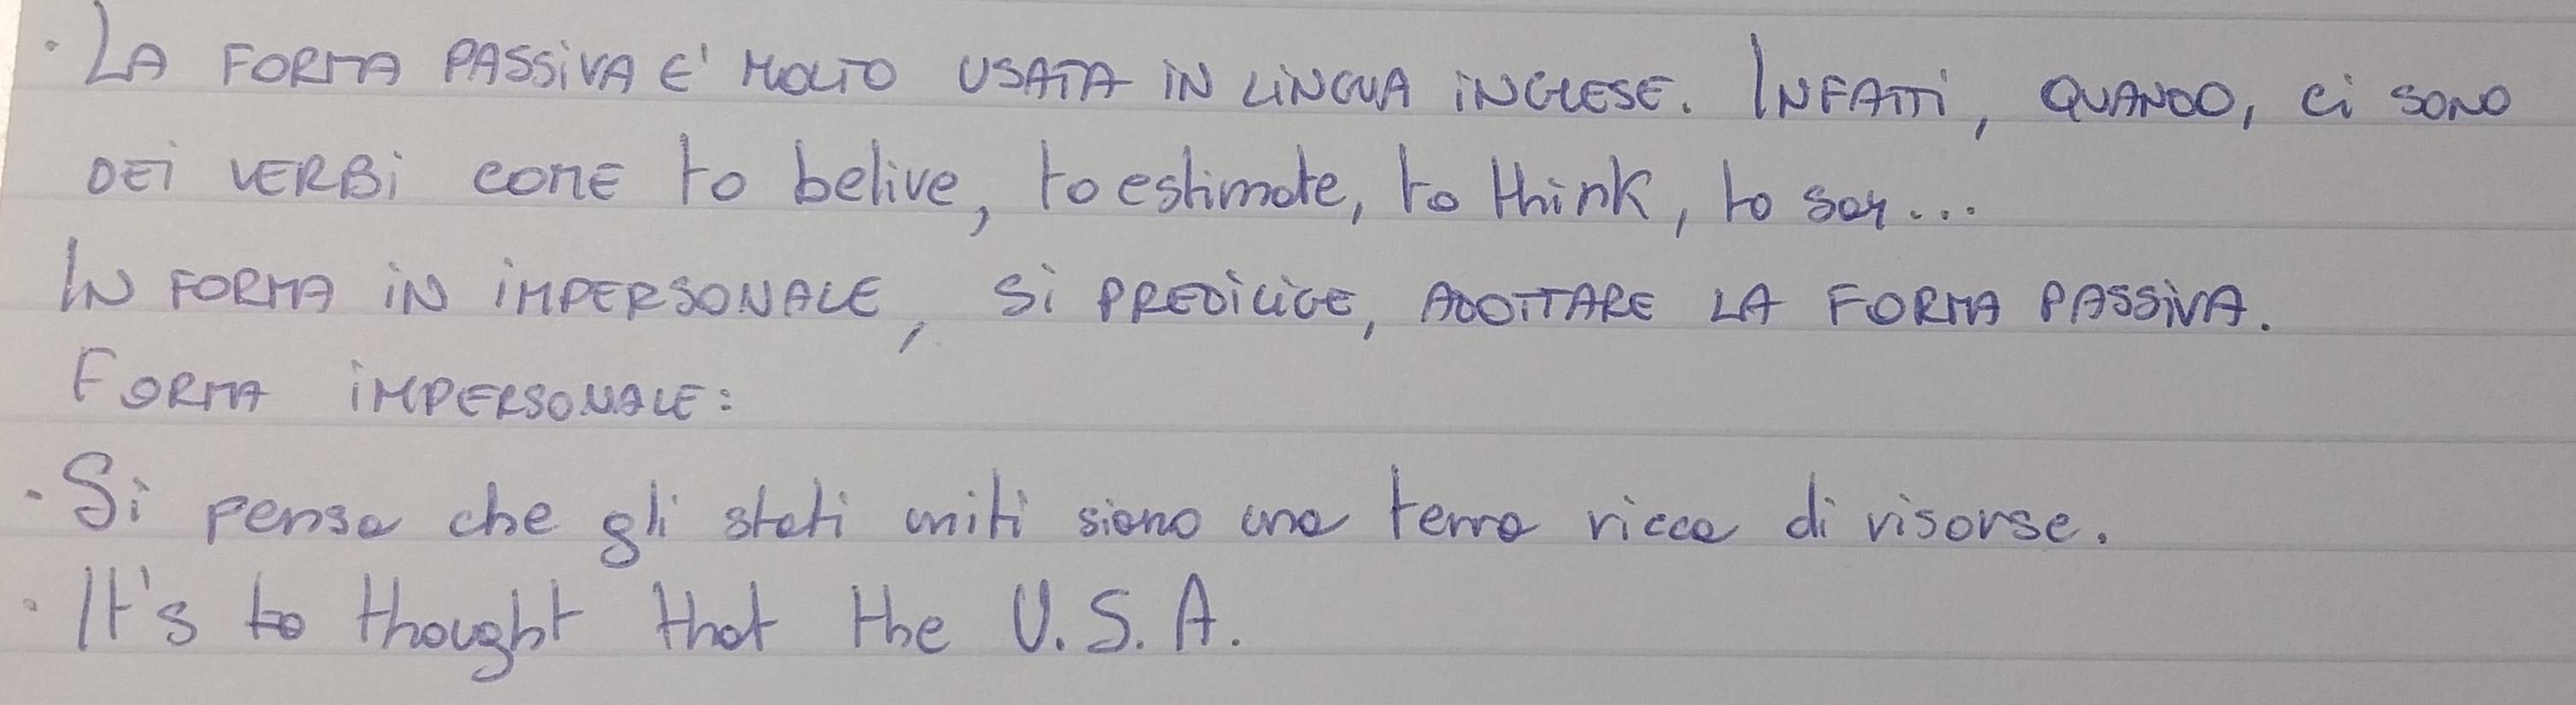 · LA FORMA PASSIVA E' MOLTO USATA IN LINGUA INGLESE. INFATTI, QUANDO, CI SONO
DEI VERBI COME to belive, to estimate, to think, to say...
IN FORMA IN IMPERSONALE, SI PREDILIGE, ADOTTARE LA FORMA PASSIVA.
FORMA IMPERSONALE:
· Si pensa che gli stati uniti siano una terra ricca di risorse.
· It's to thought that the U.S.A.